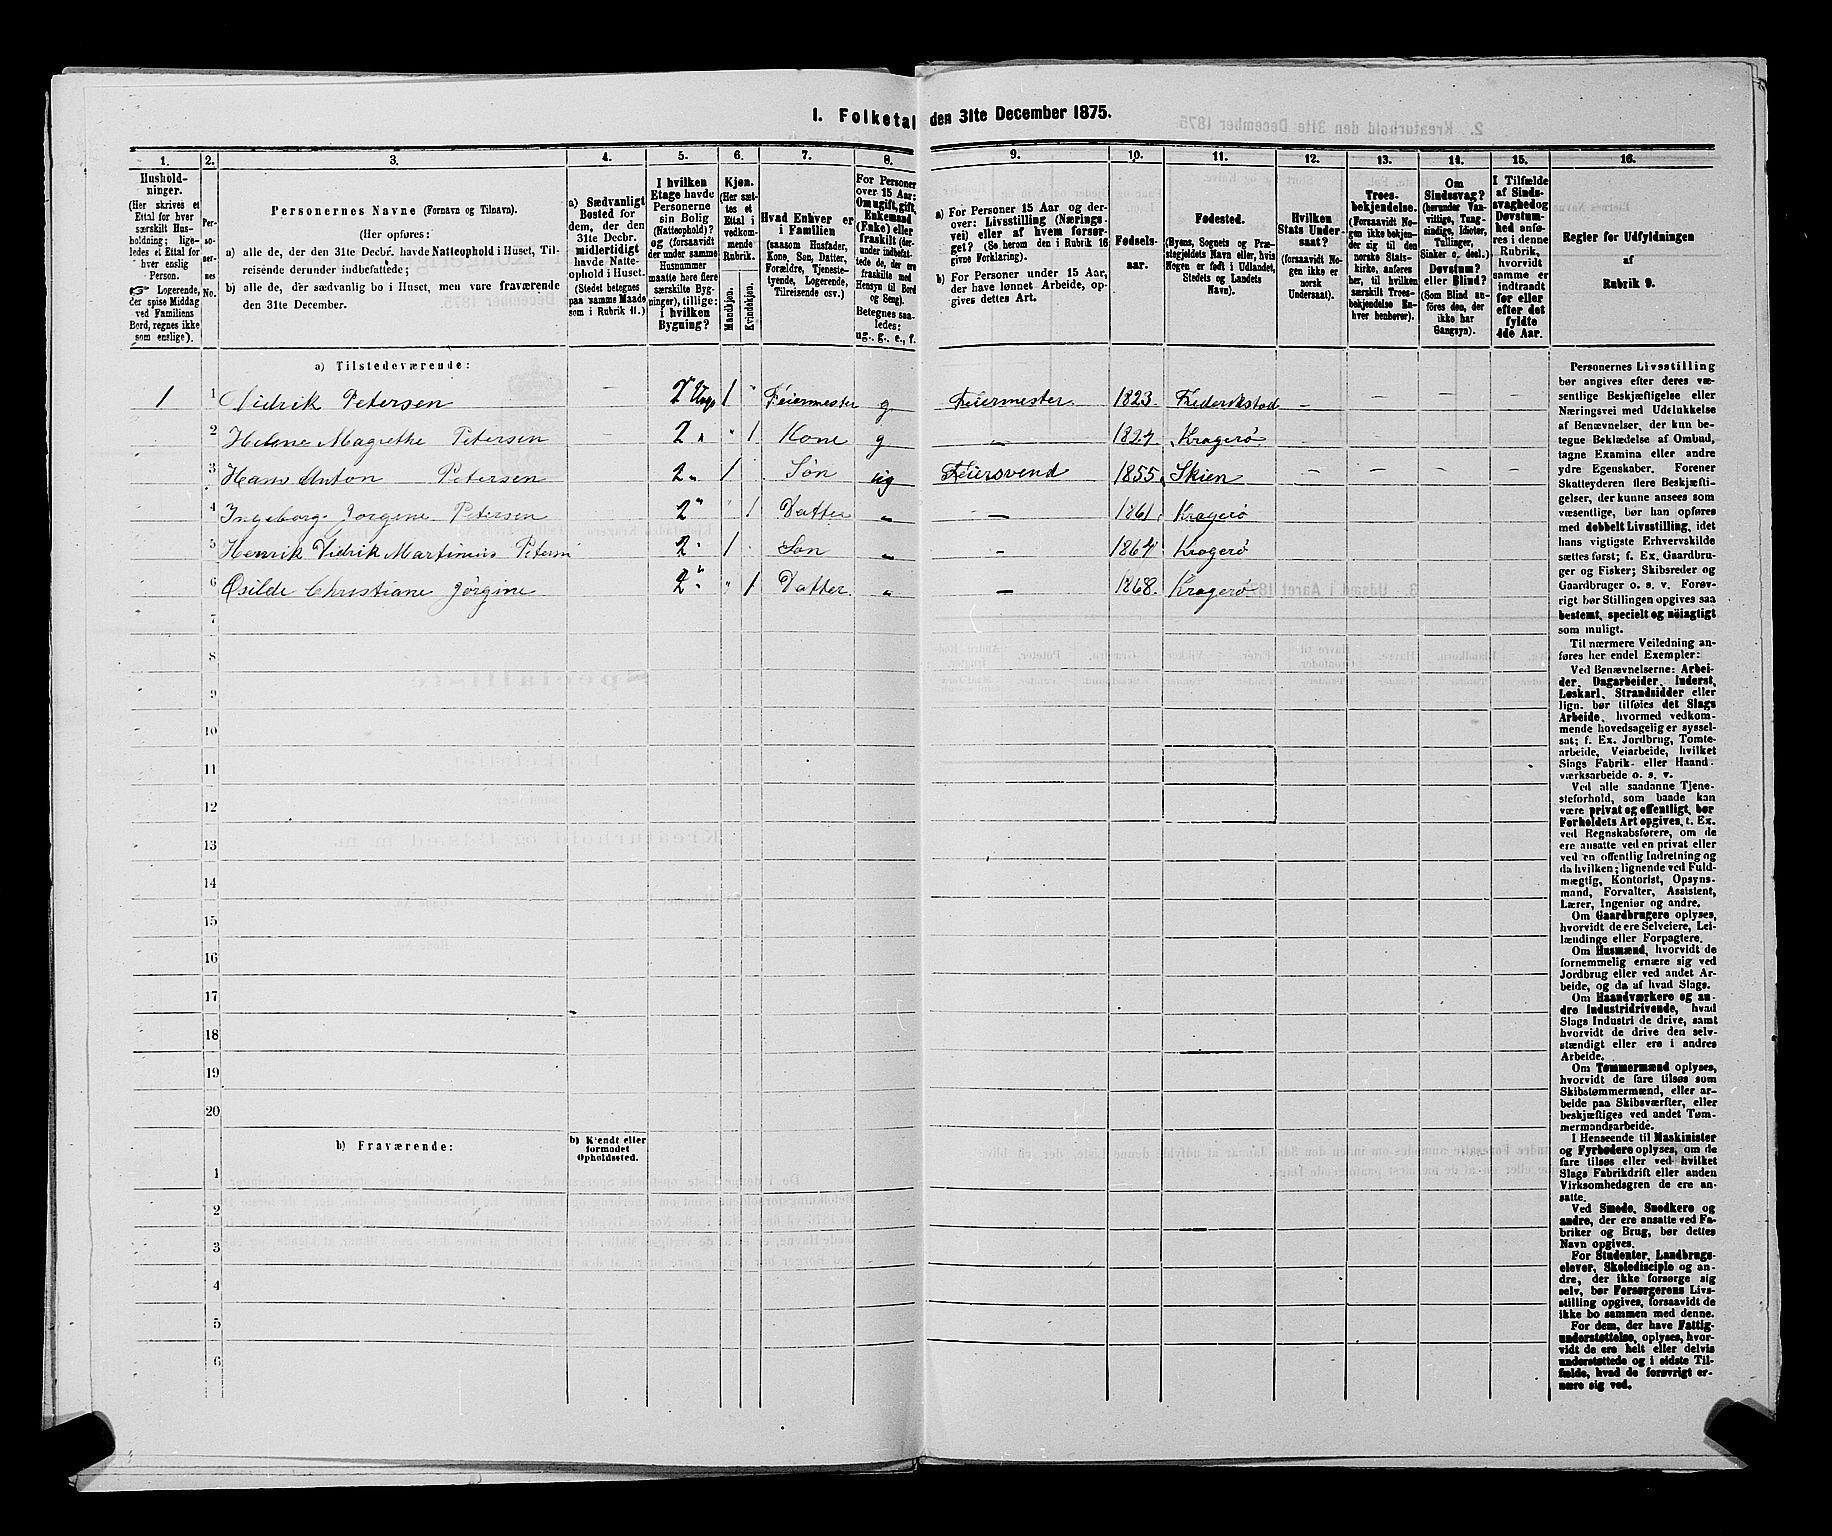 1. Folketal den 31te December 1875.
1.
2.
3.
4.
5.
6.
7.
8.
9.
10.
11.
12.
13.
14.
15.
16.
Hushold-
ninger.
(Her skrives et
Ettal for hver
særskilt Hus-
holdning; lige-
ledes et Ettal for
hver enslig
Person.
☞ Logerende,
der spise Middag
ved Familiens
Bord, regnes ikke
som enslige).
Per-
so-
ner-
nes
No.
Personernes Navne (Fornavn og Tilnavn).
(Her opføres:
a) alle de, der den 31te Decbr. havde Natteophold i Huset, Til-
reisende derunder indbefattede;
b) alle de, der sædvanlig bo i Huset, men vare fraværende
den 31te December.
a) Sædvanligt
Bosted for
dem, der den
31te Decbr.
midlertidigt
havde Natte-
ophold i Huset.
(Stedet betegnes
paa samme Maade
som i Rubrik 11.)
I hvilken
Etage havde
Personerne
sin Bolig
(Natteophold)?
og (forsaavidt
der under samme
Husnummer
maatte høre flere
særskilte Byg-
ninger), tillige:
i hvilken
Bygning?
Kjøn.
(Her sæt-
tes et
Ettal i
vedkom-
mende
Rubrik.
Mandkjøn.
Kvindekjøn.
Hvad Enhver er
i Familien
(saasom Husfader,
Kone, Søn, Datter,
Forældre, Tjeneste-
tyende, Logerende,
Tilreisende osv.)
For Personer
over 15 Aar:
Om ugift, gift,
Enkemand
(Enke) eller
fraskilt (der-
under indbefat-
tede de, der ere
fraskilte med
Hensyn til Bord
og Seng).
Betegnes saa-
ledes:
ug., g., e., f.
a) For Personer 15 Aar og der-
over: Livsstilling (Nærings-
vei) eller af hvem forsør-
get? (Se herom den i Rubrik 16
givne Forklaring).
b) For Personer under 15 Aar,
der have lønnet Arbeide, op-
gives dettes Art.
Fødsels-
aar.
Fødested.
(Byens, Sognets og Præ-
stegjeldets Navn eller, hvis
Nogen er født i Udlandet,
Stedets og Landets
Navn).
Hvilken
Stats Under-
saat?
(forsaavidt No-
gen ikke er
norsk
Undersaat).
Troes-
bekjendelse.
(Forsaavidt No-
gen ikke bekjen-
der sig til den
norske Stats-
kirke, anføres
her, til hvilken
særskilt Troes-
bekjendelse En-
hver henhører).
Om
Sindssvag?
(herunder Van-
vittige, Tung-
sindige, Idioter,
Tullinger,
Sinker o. desl.)
Døvstum?
eller Blind?
(Som Blind an-
føres den, der
ikke har
Gangsyn).
I Tilfælde
af Sinds-
svaghed og
Døvstum-
hed anfø-
res i denne
Rubrik,
hvorvidt
samme er
indtraadt
før eller
efter det
fyldte
4de Aar.
Regler for Udfyldningen
af
Rubrik 9.
a) Tilstedeværende:
1 1 Didrik Petersen — 2 Etage 1 " Feiermester g Feiermester 1823. Frederikstad — — — —
2 Helene Magrethe Petersen — 2 " " 1 Kone g — 1827 Kragerø — — — —
3 Hans Anton Petersen 2 " 1 Søn ug Feiersvend 1855 Skien — — — —
4 Ingeborg Jorgene Petersen 2 " " 1 Datter " — 1861 Kragerø
5 Henrik Didrik Martinius Petersn 2 " 1 Søn " — 1864 Kragerø
6 Osilde Christiane Jørgine 2 " " 1 Datter. " — 1868. Kragerø
7
8
9
10
11
12
13
14
15
16
17
18
19
20
b) Fraværende:
b) Kjendt eller
formodet
Opholdssted.
1
2
3
4
5
6
Personernes Livsstilling
bør angives efter deres væ-
sentlige Beskjæftigelse eller
Næringsvei med Udelukkelse
af Benævnelser, der kun be-
tegne Beklædelse af Ombud,
tagne Examina eller andre
ydre Egenskaber. Forener
Skatteyderen flere Beskjæfti-
gelser, der kunne ansees som
væsentlige, bør han opføres
med dobbelt Livsstilling, idet
hans vigtigste Erhvervskilde
sættes først; f. Ex. Gaardbru-
ger og Fisker; Skibsreder og
Gaardbruger o. s. v. Forøv-
rigt bør Stillingen opgives saa
bestemt, specielt og nöiagtigt
som muligt.
Til nærmere Veiledning an-
føres her endel Exempler:
Ved Benævnelserne: Arbei-
der, Dagarbeider, Inderst,
Løskarl, Strandsidder eller
lign. bør tilføies det Slags
Arbeide, hvormed vedkom-
mende hovedsagelig er syssel-
sat; f. Ex. Jordbrug, Tomte-
arbeide, Veiarbeide, hvilket
Slags Fabrik- eller Haand-
værksarbeide o. s. v.
Ved alle saadanne Tjene-
steforhold, som baade kan
være privat og offentligt, bør
Forholdets Art opgives, t. Ex.
ved Regnskabsførere, om de
ere ansatte ved en privat eller
ved en offentlig Indretning og
da hvilken; lignende ved Fuld-
mægtig, Kontorist, Opsyns-
mand, Forvalter, Assistent,
Lærer, Ingeniør og andre.
Om Gaardbrugere oplyses,
hvorvidt de ere Selveiere, Lei-
lændinge eller Forpagtere.
Om Husmænd, hvorvidt de
fornemmelig ernære sig ved
Jordbrug eller ved andet Ar-
beide, og da af hvad Slags.
Om Haandværkere og an-
dre Industridrivende, hvad
Slags Industri de drive, samt
hvorvidt de drive den selv-
stændigt eller ere i andres
Arbeide.
Om Tømmermænd oplyses,
hvorvidt de fare tilsøs som
Skibstømmermænd, eller ar-
beide paa Skibsværfter, eller
beskjæftiges ved andet Tøm-
mermandsarbeide.
I Henseende til Maskinister
og Fyrbødere oplyses, om de
fare tilsøs eller ved hvilket
Slags Fabrikdrift eller anden
Virksomhedsgren de ere an-
satte.
Ved Smede, Snedkere og
andre, der ere ansatte ved Fa-
briker og Brug, bør dettes
Navn opgives.
For Studenter, Landbrugs-
elever, Skoledisciple og an-
dre, der ikke forsørge sig
selv, bør Forsørgerens Livs-
stilling opgives, forsaavidt de
ikke bo sammen med denne.
For dem, der have Fattig-
understøttelse, oplyses, hvor-
vidt de ere helt eller delvis
understøttede og i sidste Til-
fælde, hvad de forøvrigt er-
nære sig ved.